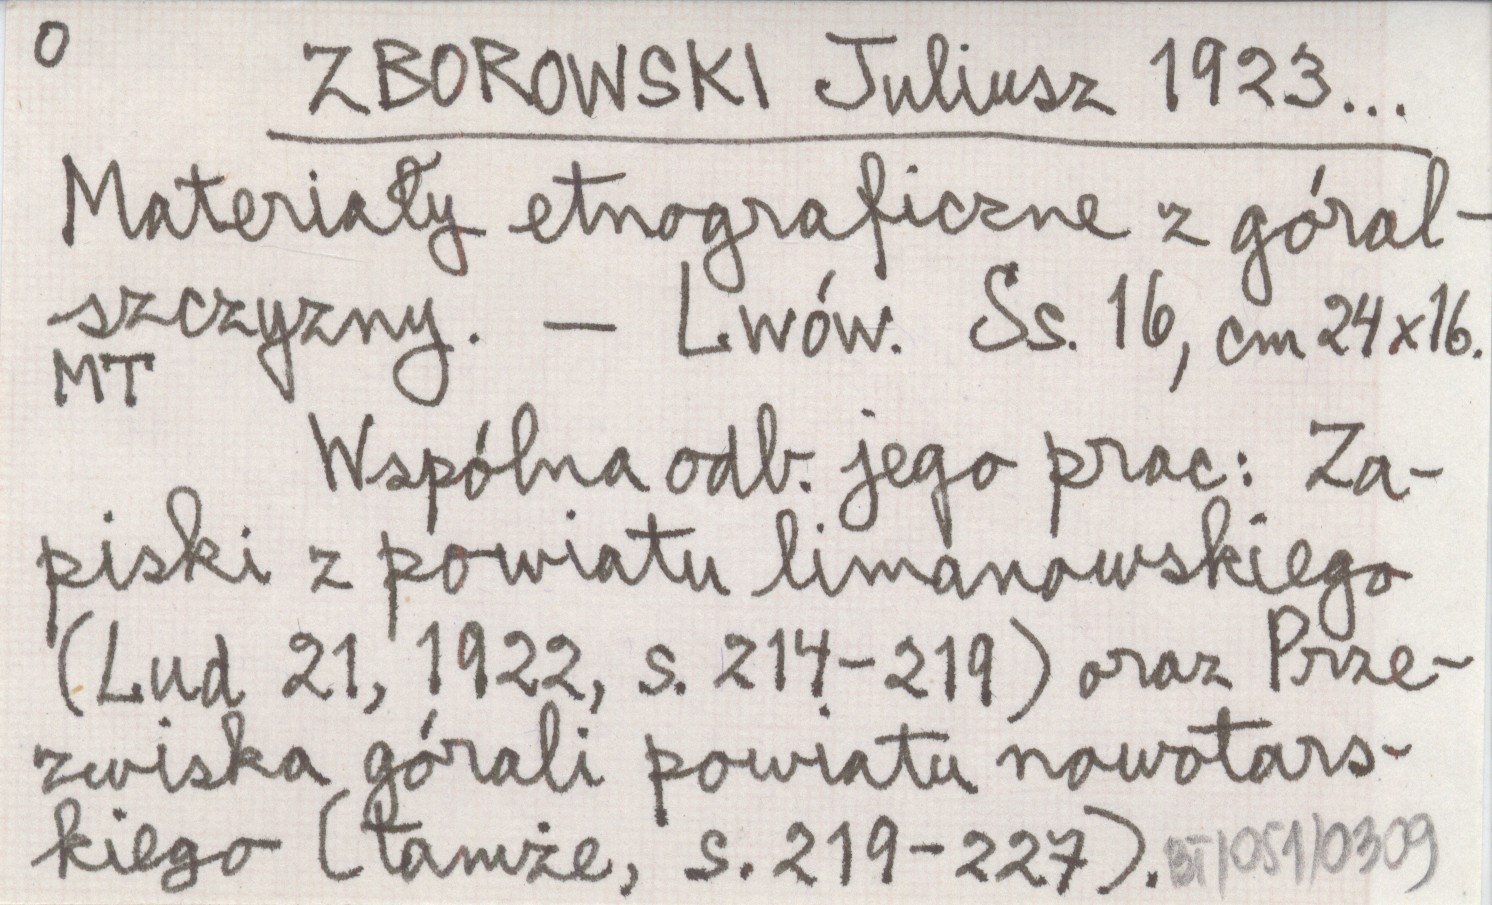 O
ZBOROWSKI Juliusz 1923...
Materiały etnograficzne z góral-
szczyzny. — Lwów. Ss. 16, cm 24x16.
MT
Wspólna odb. jego prac: Za-
piski z powiatu limanowskiego
(Lud 21, 1922, s. 214-219) oraz Prze-
zwiska górali powiatu nowotars-
kiego (tamże, s. 219-227).
BT/051/0309